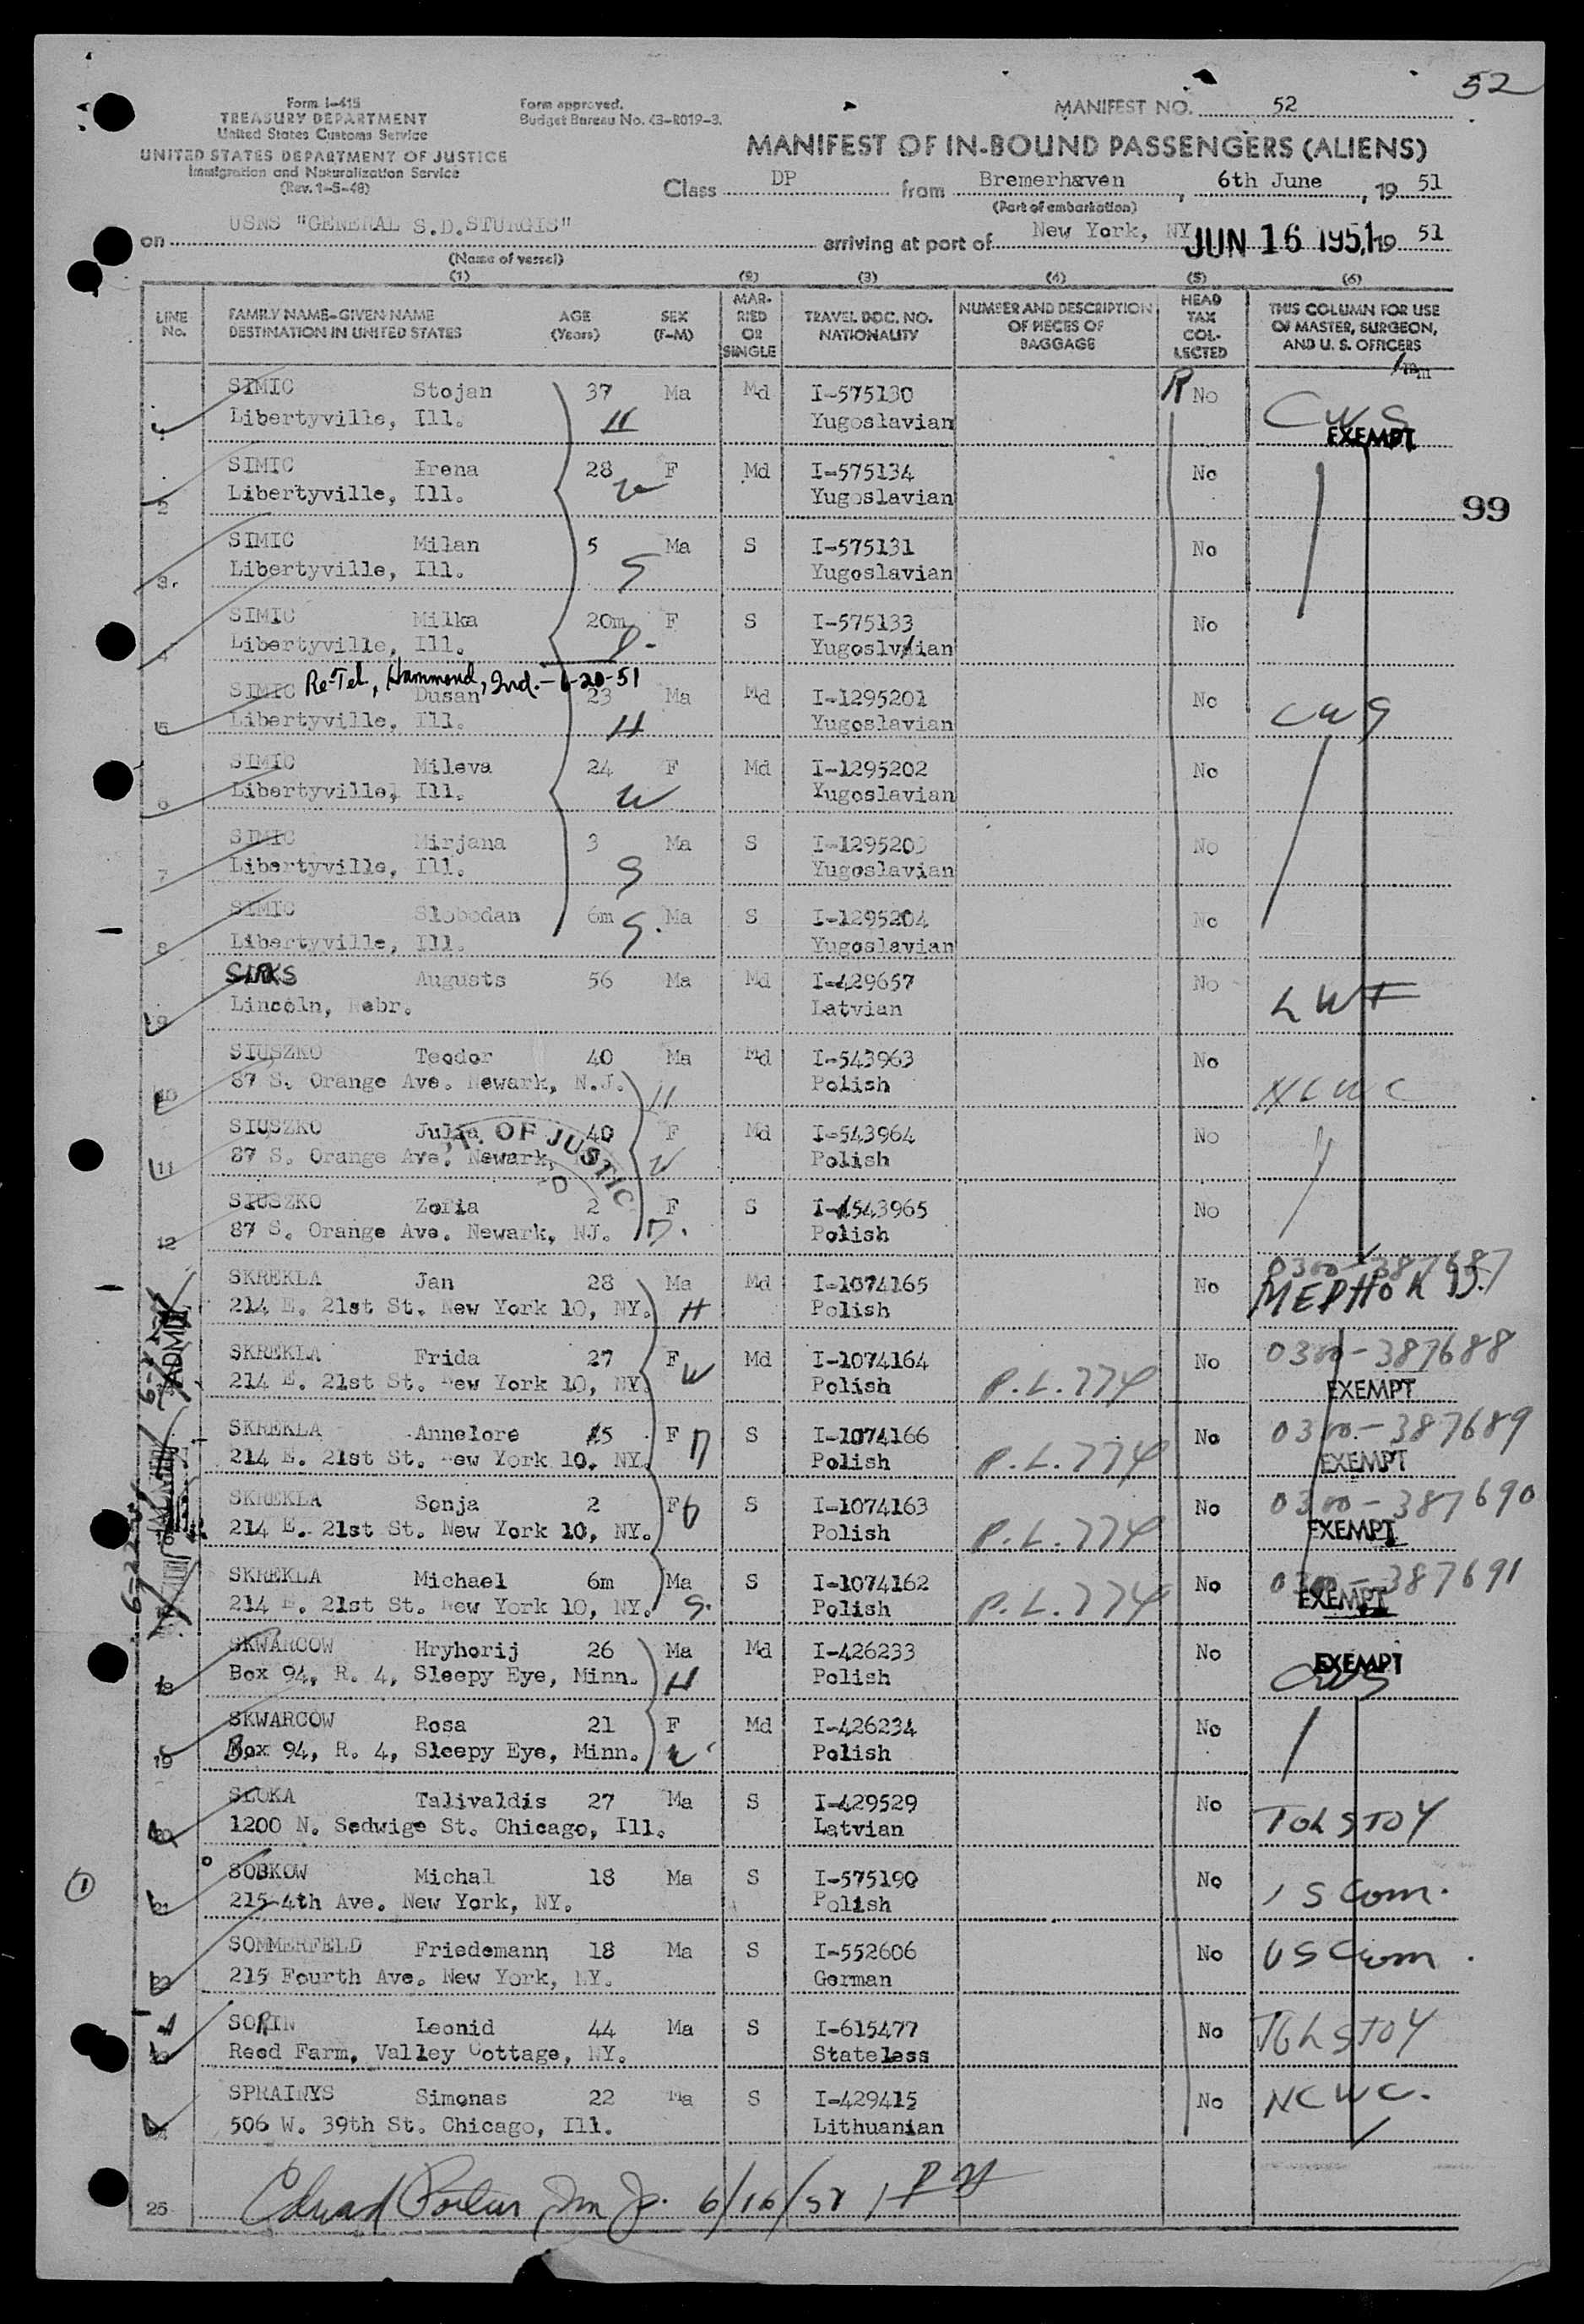 52
Form I-415
TREASURY DEPARTMENT
United States Customs Service
UNITED STATES DEPARTMENT OF JUSTICE
Immigration and Naturalization Service
(Rev. 1-5-48)
Form approved.
Budget Bureau No. 43-R019-3.
MANIFEST NO. 52
MANIFEST OF IN-BOUND PASSENGERS (ALIENS)
Class DP from Bremerhaven, 6th June, 19 51
(Port of embarkation)
on USNS "GENERAL S.D.STURGIS" arriving at port of New York, NY JUN 16 1951 19 51
(Name of vessel)
(1) (2) (3) (4) (5) (6)
LINE No.
FAMILY NAME-GIVEN NAME
DESTINATION IN UNITED STATES
AGE (Years)
SEX (F-M)
MARRIED OR SINGLE
TRAVEL DOC. NO. NATIONALITY
NUMBER AND DESCRIPTION OF PIECES OF BAGGAGE
HEAD TAX COLLECTED
THIS COLUMN FOR USE OF MASTER, SURGEON, AND U. S. OFFICERS
SIMIC Stojan 37 Ma Md I-575130 No CWS
Libertyville, Ill. H Yugoslavian EXEMPT
SIMIC Irena 28 F Md I-575134 No
2 Libertyville, Ill. W Yugoslavian
99
SIMIC Milan 5 Ma S I-575131 No
3. Libertyville, Ill. S Yugoslavian
SIMIC Milka 20m F S I-575133 No
4 Libertyville, Ill. D. Yugoslvian
Re-Tel, Hammond, Ind. - 6-20-51
SIMIC Dusan 23 Ma Md I-1295201 No CWS
5 Libertyville, Ill. H Yugoslavian
SIMIC Mileva 24 F Md I-1295202 No
6 Libertyville, Ill. W Yugoslavian
SIMIC Mirjana 3 Ma S I-1295203 No
7 Libertyville, Ill. S Yugoslavian
SIMIC Slobodan 6m Ma S I-1295204 No
8 Libertyville, Ill. S. Yugoslavian
Augusts 56 Ma Md I-429657 No LWF
9 Lincoln, Nebr. Latvian
SIUSZKO Teodor 40 Ma Md I-543963 No
10 87 S. Orange Ave. Newark, N.J. H Polish NCWC
SIUSZKO Julia 40 F Md I-543964 No
11 87 S. Orange Ave. Newark, W Polish
OF JUSTIC
SIUSZKO Zofia 2 F S I-543965 No
12 87 S. Orange Ave. Newark, NJ. D. Polish
SKREKLA Jan 28 Ma Md I-1074165 No 0300-387687
214 E. 21st St. New York 10, NY. H Polish
SKREKLA Frida 27 F Md I-1074164 No 0300-387688
214 E. 21st St. New York 10, NY. W Polish P.L. 774 EXEMPT
SKREKLA Annelore 5 F D S I-1074166 No 0300-387689
214 E. 21st St. New York 10, NY. Polish P.L. 774 EXEMPT
SKREKLA Sonja 2 F D S I-1074163 No 0300-387690
214 E. 21st St. New York 10, NY. Polish P.L. 774 EXEMPT
SKREKLA Michael 6m Ma S I-1074162 No 0300-387691
214 E. 21st St. New York 10, NY. S. Polish P.L. 774 EXEMPT
SKWARCOW Hryhorij 26 Ma Md I-426233 No EXEMPT
18 Box 94, R. 4, Sleepy Eye, Minn. H Polish CWS
SKWARCOW Rosa 21 F Md I-426234 No
19 Box 94, R. 4, Sleepy Eye, Minn. W Polish
SLOKA Talivaldis 27 Ma S I-429529 No TOLSTOY
20 1200 N. Sedwige St. Chicago, Ill. Latvian
SOBKOW Michal 18 Ma S I-575190 No
1
21 215-4th Ave. New York, NY. Polish US Com.
SOMMERFELD Friedemann 18 Ma S I-552606 No US Com.
22 215 Fourth Ave. New York, NY. German
SORIN Leonid 44 Ma S I-615477 No TOLSTOY
23 Reed Farm, Valley Cottage, NY. Stateless
SPRAINYS Simonas 22 Ma S I-429415 No NCWC.
506 W. 39th St. Chicago, Ill. Lithuanian
25 6/16/51